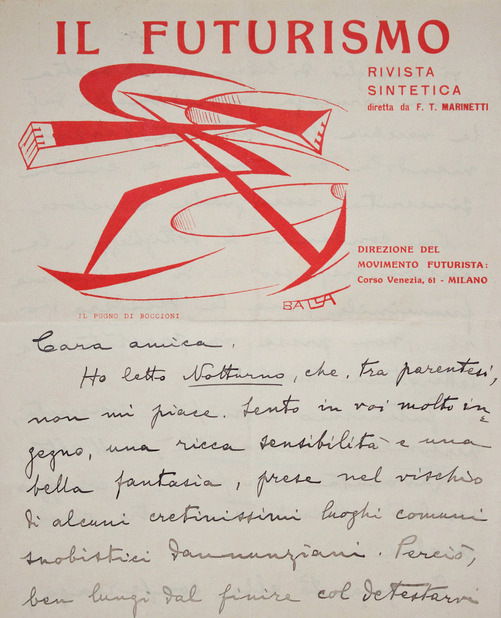 IL FUTURISMO
RIVISTA
SINTETICA
diretta da F. T. MARINETTI
DIREZIONE DEL
MOVIMENTO FUTURISTA:
Corso Venezia, 61 - MILANO
BALLA
IL PUGNO DI BOCCIONI
Cara amica.
Ho letto Notturno, che, tra parentesi,
non mi piace. Sento in voi molto in=
gegno, una ricca sensibilità e una
bella fantasia, prese nel vischio
di alcuni cretinissimi luoghi comuni
snobistici dannunziani. Perciò,
ben lungi dal finire col detestarvi